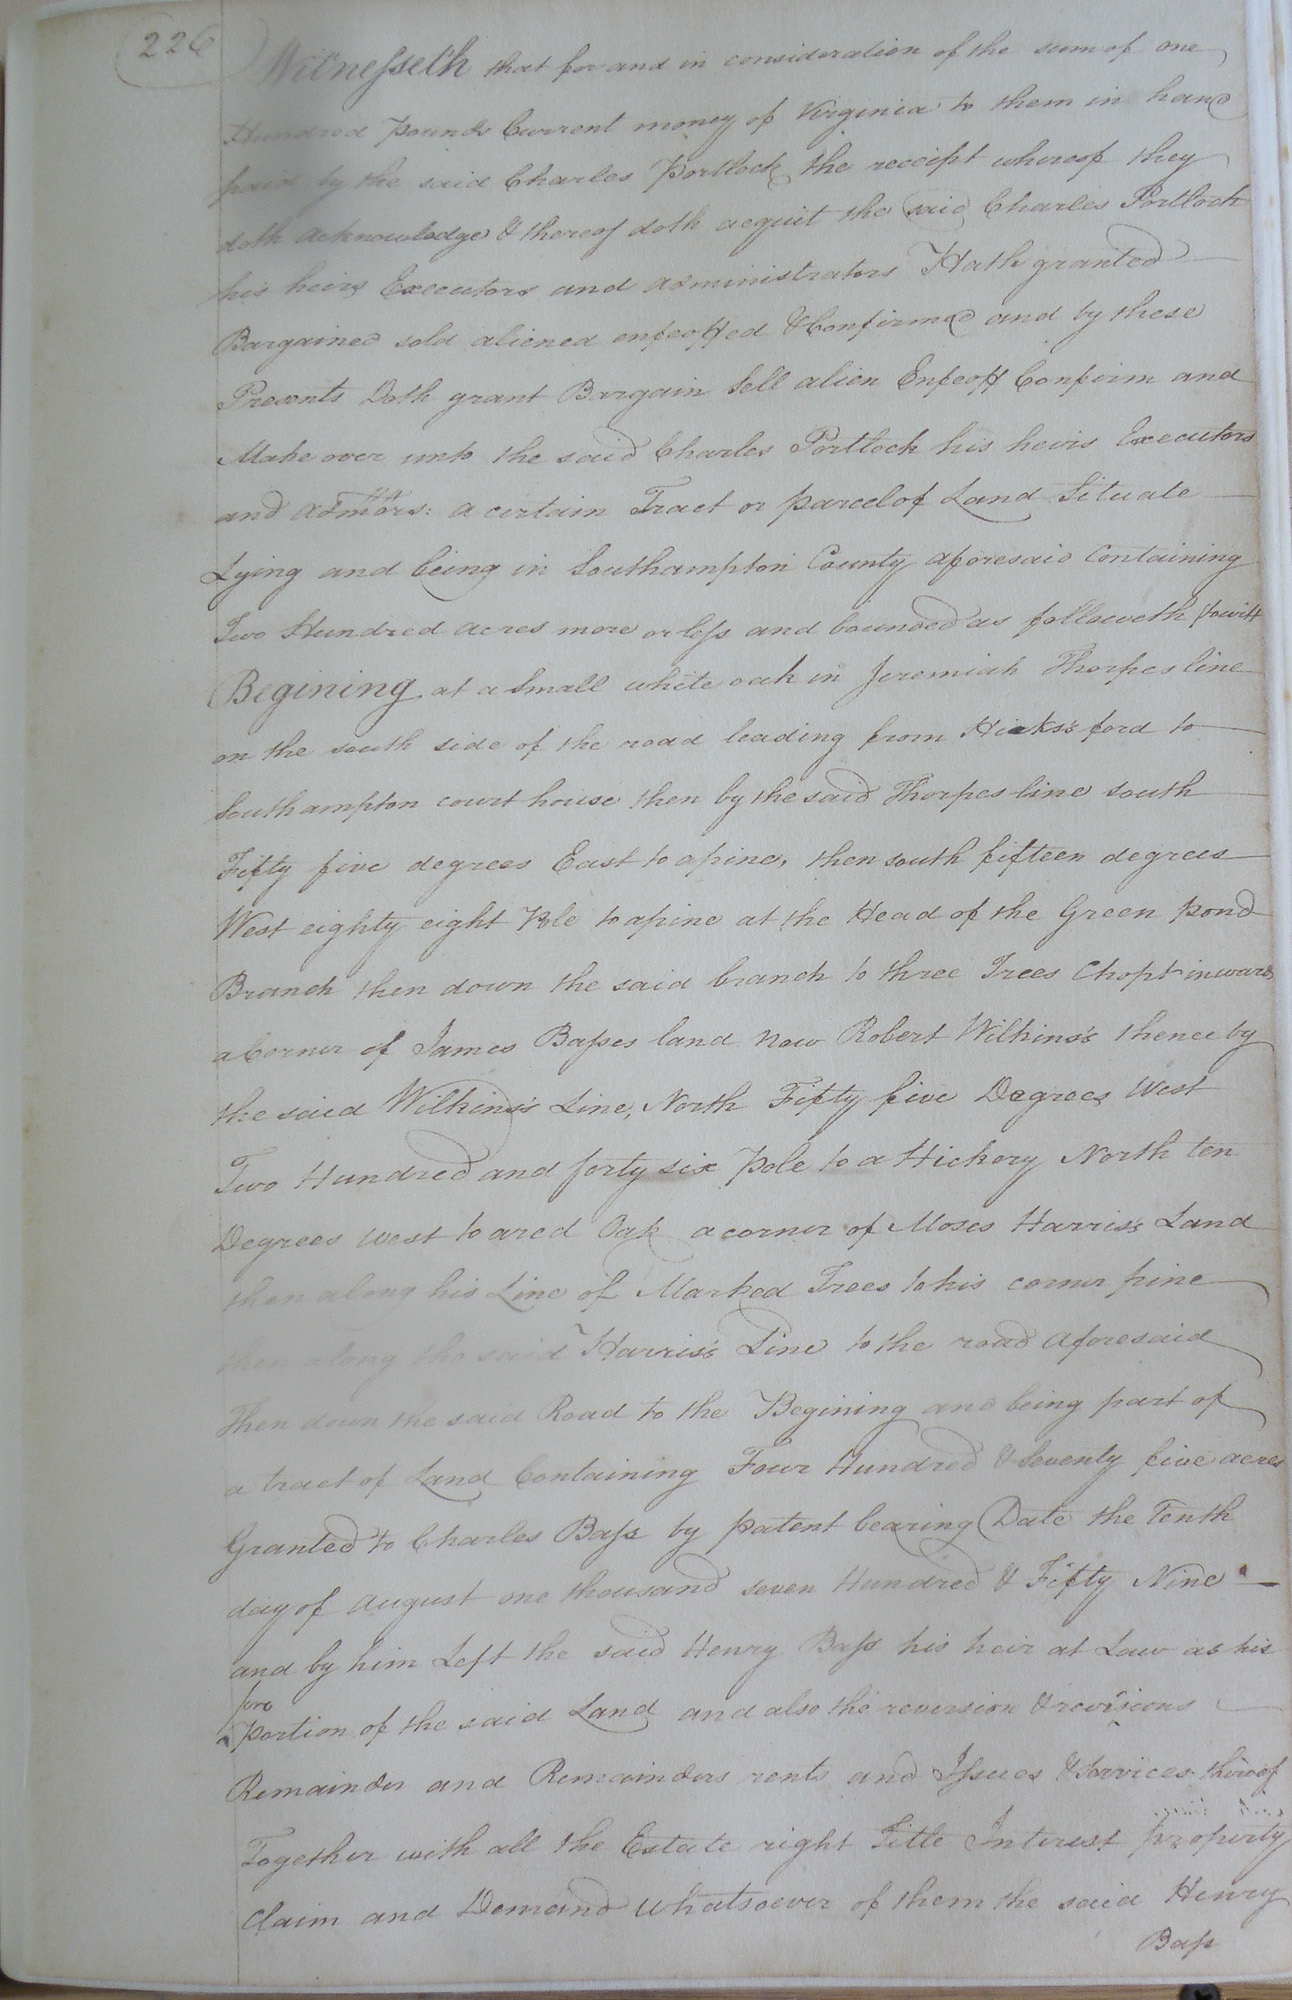 226
Witnesseth that for and in consideration of the sum of one
Hundred pounds Current money of Virginia to them in hand
paid by the said Charles Portlock the receipt whereof they
doth acknowledge & thereof doth acquit the said Charles Portlock
his heirs Executors and administrators Hath granted
Bargained sold aliened enfeoffed & Confirmed and by these
Presents Doth grant Bargain Sell alien Enfeoff Confirm and
Make over unto the said Charles Portlock his heirs Executors
and admors: a certain Tract or parcel of Land Situate
Lying and being in Southampton County aforesaid Containing
Two Hundred acres more or less and bounded as followeth towitt
Begining at a Small white oak in Jeremiah Thorpes line
on the south side of the road leading from Hicks's ford to
Southampton court house then by the said Thorpes line south
Fifty five degrees East to a pine, then south fifteen degrees
West eighty eight Pole to a pine at the Head of the Green pond
Branch then down the said branch to three Trees Chopt inward
a Corner of James Basses land now Robert Wilkins's thence by
the said Wilkins's Line, North Fifty five Degrees West
Two Hundred and forty six Pole to a Hickory North ten
Degrees West to a red Oak a corner of Moses Harris's Land
then along his Line of Marked Trees to his corner pine
then along the said Harris's Line to the road aforesaid
Then down the said Road to the Begining and being part of
a tract of Land Containing Four Hundred & Seventy five acres
Granted to Charles Bass by patent bearing Date the Tenth
day of August one thousand seven Hundred & Fifty Nine
and by him Left the said Henry Bass his heir at Law as his
pro
^portion of the said Land and also the reversion & revisions
Remainder and Remainders rents and Issues & Services thereof
Together with all the Estate right Title Interest property
Claim and Demand whatsoever of them the said Henry
Bass